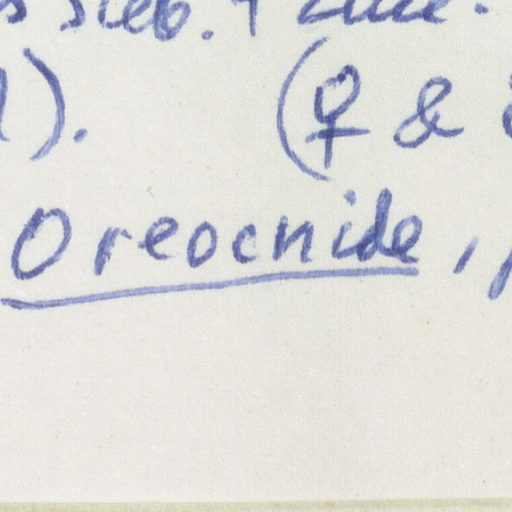 Sieb. & Zucc.
). (♀ &
Oreocnide,